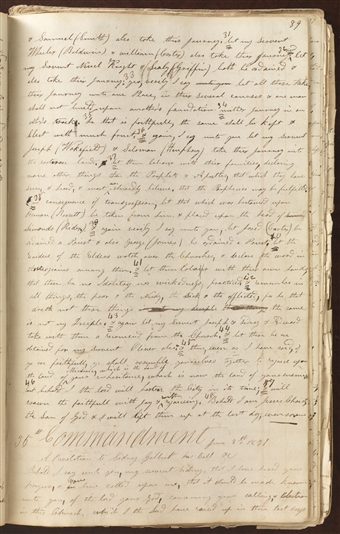 89
& Samuel (Smith) also take this journey 31 let my Servent
Wheler (Baldwin) & william (Carter) also take this journey 32 & let
my Servent Newel Knight & Sealy (Griffin) both be ordained &
also take this journey 33 yea verily I say unto you let all these take
their journey unto one Place, in their several courses & one man
shall not build upon another's foundation neither journey in an
others track 34 he that is faithfull, the same shall be kept &
blest with much fruit 35 & again I say unto you let my Servent
Joseph (Wakefield) & Solomon (Humphry) take their journey into
the eastern lands 36 let them labour with their own families, declaring
none other things than the Prophets & Apostles, that which they have
seen, & heard, & most assuredly believe, that the Prophecies may be fulfilled
37 in consequence of transgression, let that which was bestowed upon
Heman (Basset) be taken from him & placed upon the head of
Simonds (Rider) 38 & again verily I say unto you, let Jared (Carter) be
ordained a Priest & also George (James) be ordained a Priest 39 let the
residue of the Elders watch over the Churches, & declare the word in
the regions among them 40 & let them labour with their own hands
that there be no Idolitry nor wickedness, practiced 41 & remember in
all things, the poor & the Needy, the sick & the afflicted, for he that
doeth not these things the same
is not my Disciple 42 & again let my Servent Joseph & Sidney & Edward
take with them a recommend from the Church & let there be one
obtained for my Servent Oliver also 43 & thus even as I have said, if
ye are faithfully ye shall assemble yourselves together to rejoice upon
the land of Missorie which is the land of your inheritance, which is now the land of your enemies
44 but behold I the Lord will hasten the City in its time & will
crown the faithfull with joy & with rejoicing, 45 Behold I am Jesus Christ
the Son of God & I will lift them up at the last day, even so amen
56th Commandment June 8th 1831
A Revelation to Sidney Gilbert his call &c
Behold I say unto you, my servent Sidney, that I have heard your
prayers, & you have called upon me, that it should be made known
unto you, of the Lord your God, concerning your calling, & election
in this Church, which I the Lord have raised up in these last days